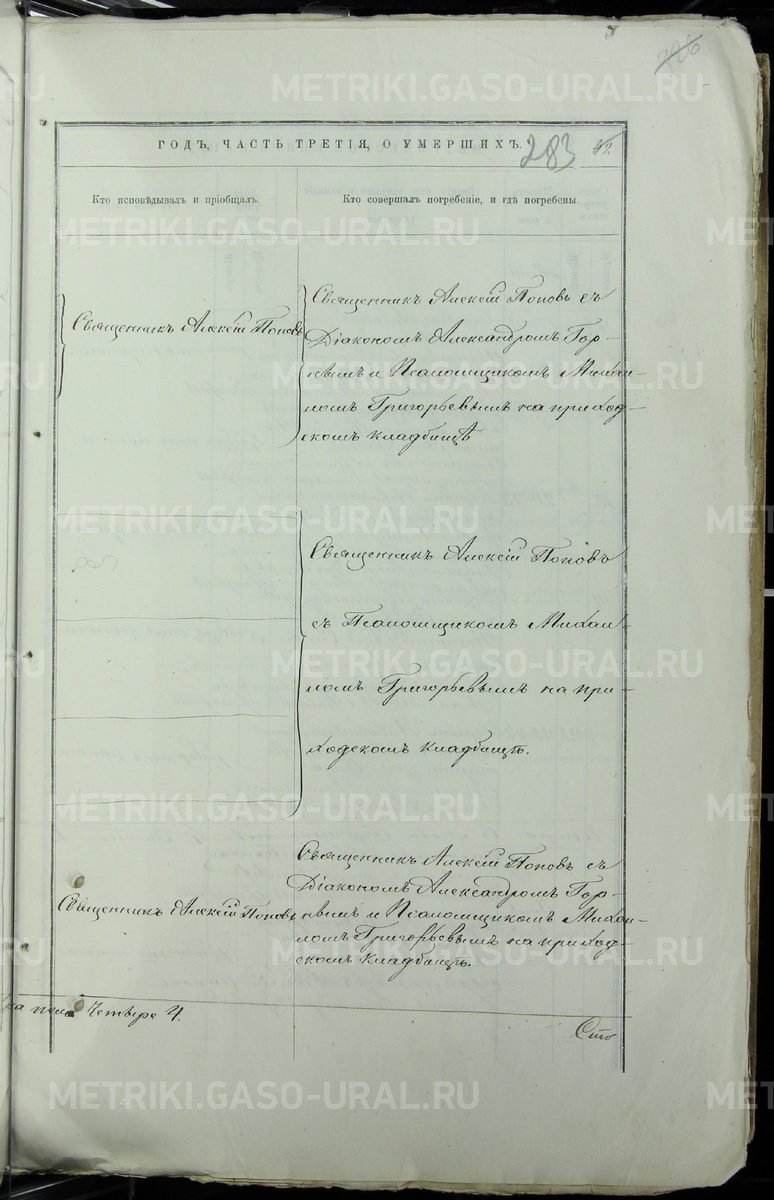 ГОДЪ, ЧАСТЬ ТРЕТІЯ, О УМЕРШИХЪ.
283
Кто исповѣдывалъ и пріобщалъ.
Кто совершалъ погребеніе, и гдѣ погребены.
Священникъ Алексій Поповъ
Священникъ Алексій Поповъ съ
Діакономъ Александромъ Гор-
нымъ и Псаломщикомъ Михаи-
ломъ Григорьевымъ на приход-
скомъ кладбищѣ
Священникъ Алексій Поповъ
съ Псаломщикомъ Михаи-
ломъ Григорьевымъ на при-
ходскомъ кладбищѣ.
Священникъ Алексій Поповъ
Священникъ Алексій Поповъ съ
Діакономъ Александромъ Гор-
нымъ и Псаломщикомъ Михаи-
ломъ Григорьевымъ на приход-
скомъ кладбищѣ.
пола Четыре 4.
METRIKI.GASO-URAL.RU